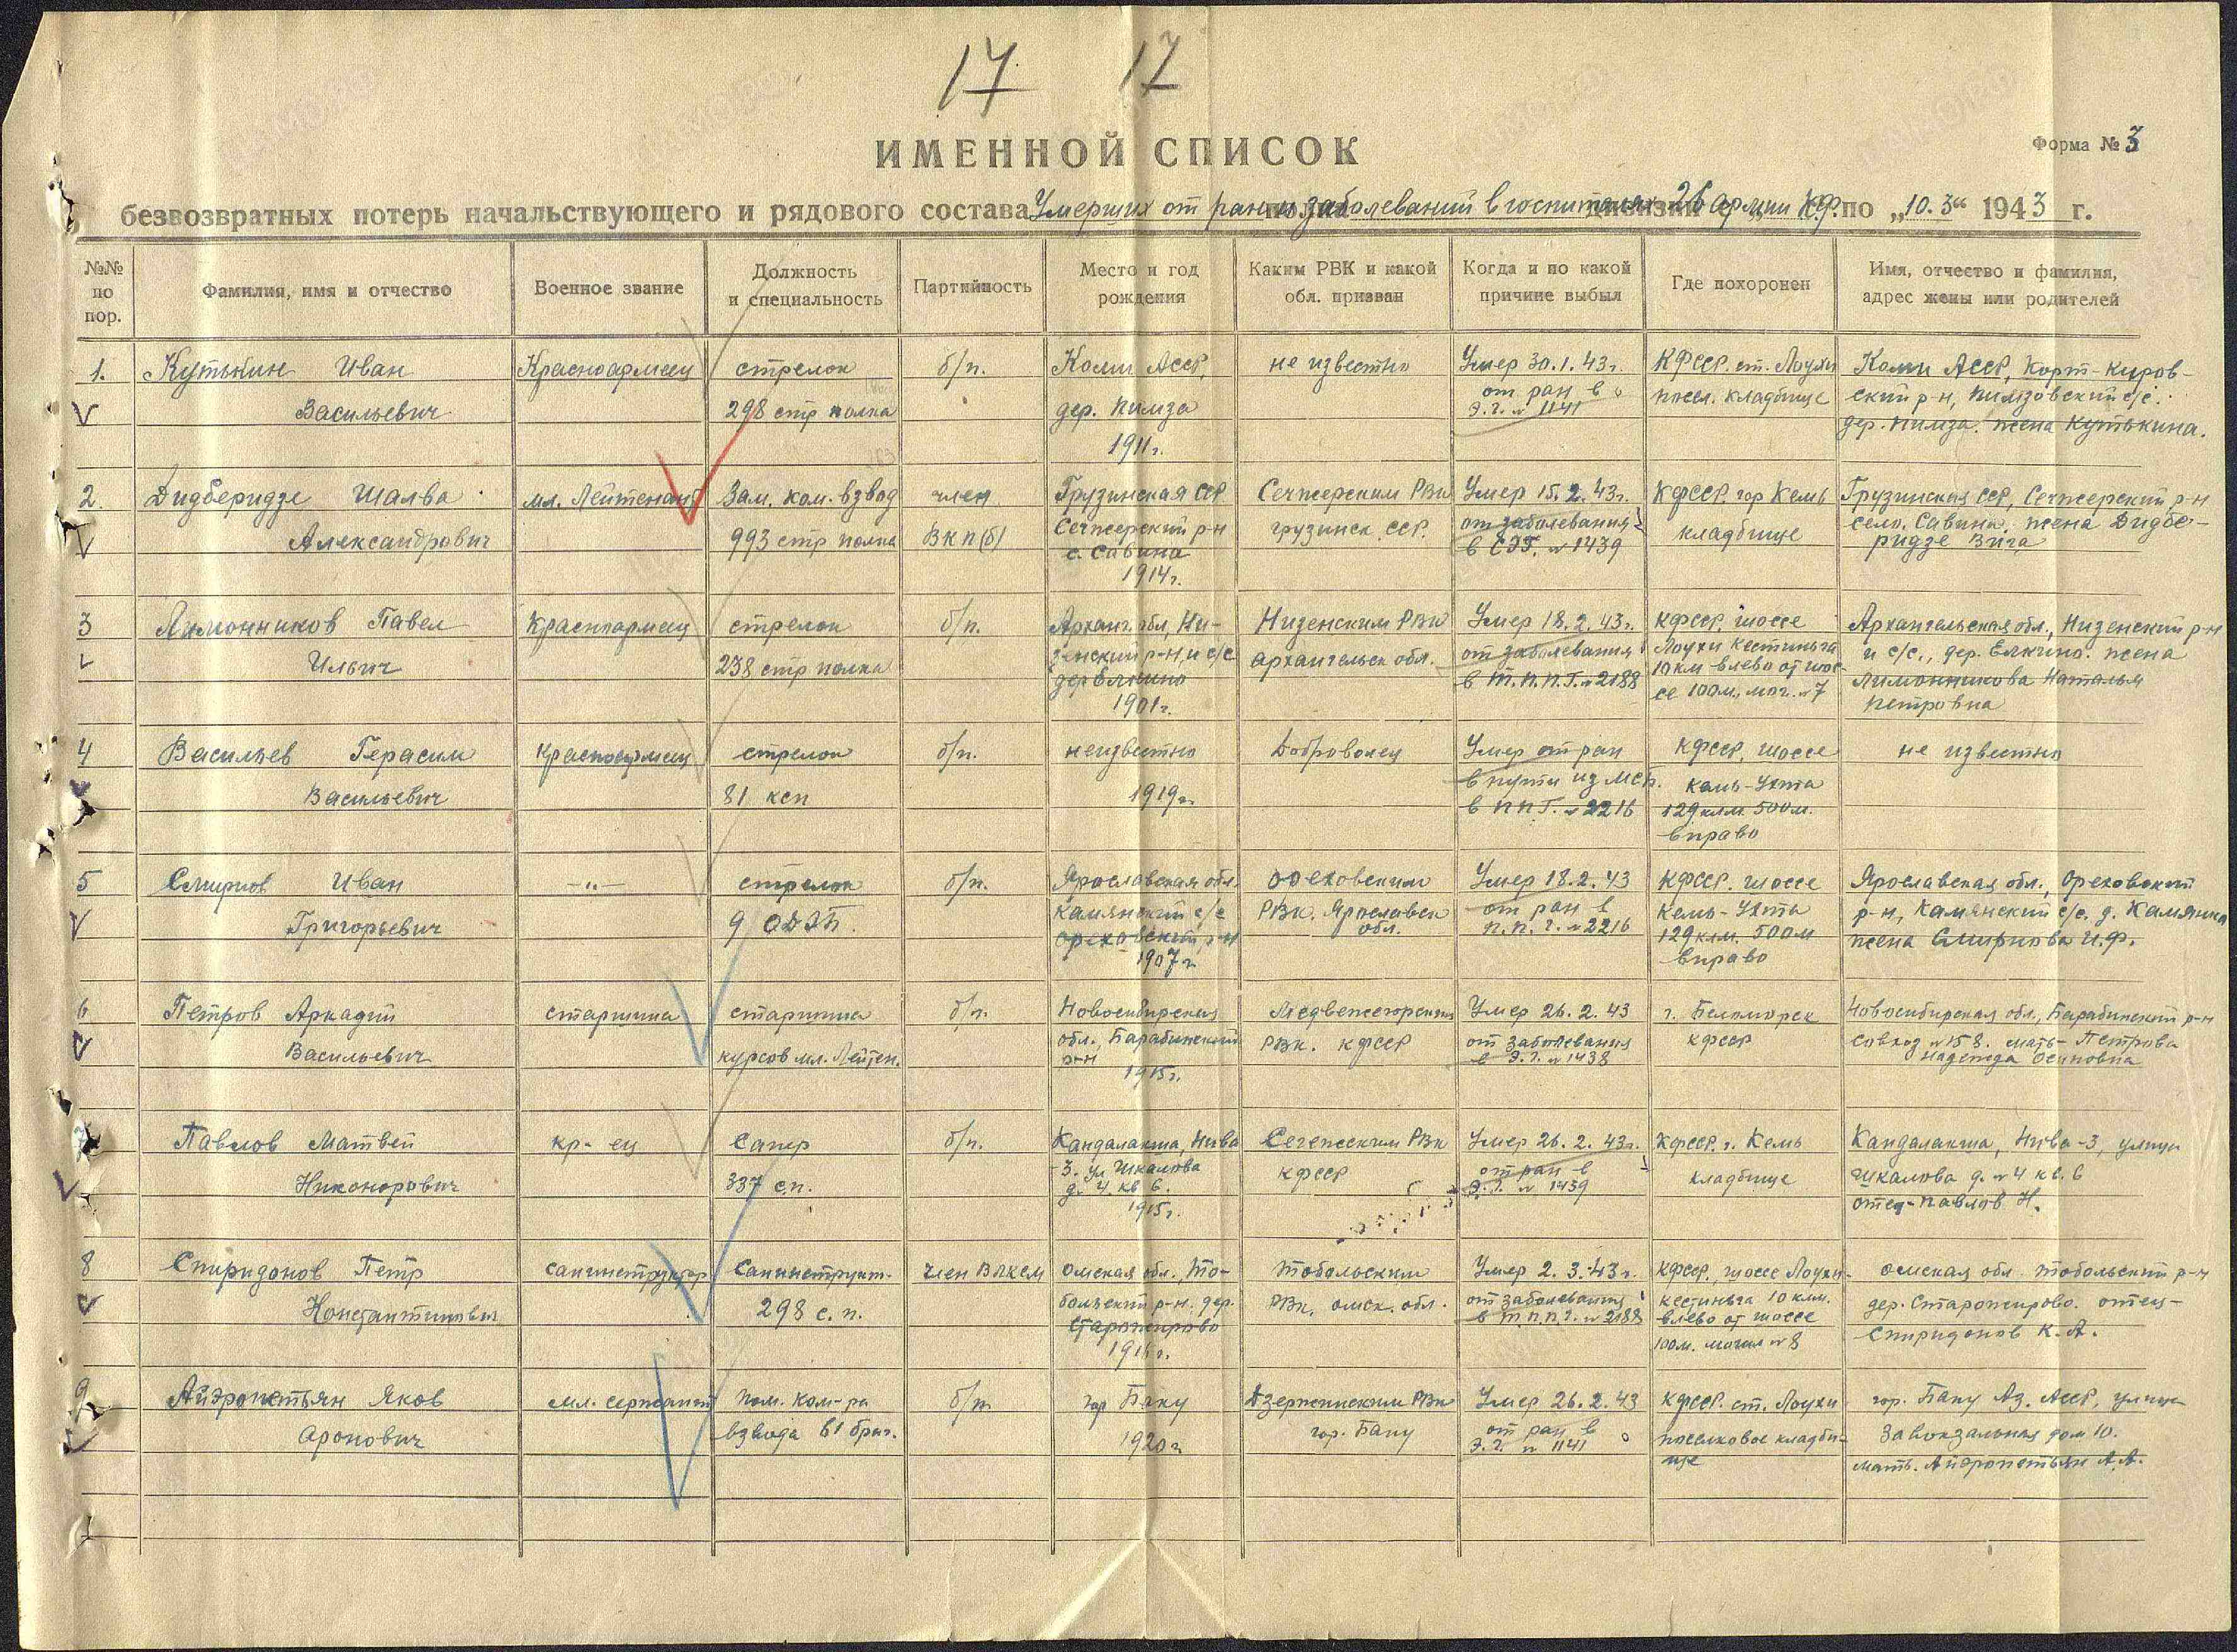 17 17
ИМЕННОЙ СПИСОК
Форма № 3
безвозвратных потерь начальствующего и рядового состава Умерших от ран и заболеваний в госпиталях 26 армии К.Ф. по „10.3“ 1943 г.
№№ по пор.
Фамилия, имя и отчество
Военное звание
Должность и специальность
Партийность
Место и год рождения
Каким РВК и какой обл. призван
Когда и по какой причине выбыл
Где похоронен
Имя, отчество и фамилия, адрес жены или родителей
1. Кутькин Иван Красноармеец стрелок б/п. Коми АССР, не известно Умер 30.1.43г. КФССР. ст. Лоухи Коми АССР, Корт-Киров-
Васильевич 298 стр полка дер. Пимза от ран в посел. кладбище ский р-н, Пимзовский с/с.
1911г. Э.Г. № 1141 дер. Пимза. жена Кутькина.
2. Дидберидзе Шалва мл. Лейтенант Зам. ком. взвод член Грузинская ССР Сечжерским РВК Умер 15.2.43г. КФССР, гор Кемь Грузинская ССР, Сечжерский р-н
Александрович 993 стр полка ВКП(б) Сечжерский р-н грузинск. ССР. от заболевания кладбище село. Савина, жена Дидбе-
с. Савина в СЭГ. № 1439 ридзе Вига
1914г.
3 Лимонников Павел Красноармеец стрелок б/п. Арханг. обл, Ни- Низенским РВК Умер 18.2.43г. КФССР, шоссе Архангельская обл., Низенский р-н
Ильич 238 стр полка зенский р-н, и с/с архангельск обл. от заболевания Лоухи Кестиньга и с/с., дер. Елкино. жена
дер Елкино в Т.П.П.Г. № 2188 10 км влево от шос- Лимонникова Наталья
1901г. се 100м., мог. № 7 Петровна
4 Васильев Герасим красноармеец стрелок б/п. неизвестно Доброволец Умер от ран КФССР, шоссе не известно
Васильевич 81 ксп 1919г. в пути из МСБ. Кемь-Ухта
в ППГ. № 2216 129 клм. 500м.
вправо
5 Смирнов Иван —"— стрелок б/п. Ярославская обл. Ореховским Умер 18.2.43 КФССР. шоссе Ярославская обл., Ореховский
Григорьевич 9 Камянский с/с РВК. Ярославск обл. от ран в Кемь-Ухты р-н, Камянский с/с. д. Камянка
Ореховский р-н п.п.г. № 2216 129 клм. 500м жена Смирнова И.Ф.
1907г вправо
6 Петров Аркадий старшина старшина б/п. Новосибирская Медвежегорским Умер 26.2.43 г. Беломорск Новосибирская обл., Барабинский р-н
Васильевич курсов мл. Лейтен. обл., Барабинский РВК. КФССР от заболевания КФССР совхоз № 158. мать-Петрова
р-н в Э.Г. № 1438 Надежда Осиповна
1915г.
Павлов Матвей кр-ец Сапер б/п. Кандалакша, Нива Сегежским РВК Умер 26.2.43г. КФССР. г. Кемь Кандалакша, Нива-3, улица
Никонорович 337 с.п. 3. ул Шкалова КФССР от ран в кладбище Шкалова д. № 4 кв. 6
д. 4. кв 6. Э.Г. № 1439 отец-Павлов Н.
1915г.
8 Спиридонов Петр санинструктор Санинструкт. член ВЛКСМ Омская обл., То- Тобольским Умер 2.3.43г. КФССР, шоссе Лоухи- Омская обл Тобольский р-н
Константинович 298 с.п. больский р-н. дер. РВК, омск. обл. от заболевания кестиньга 10 клм. дер. Старожирово. отец-
Старожирово в Т.П.П.Г. № 2188 влево от шоссе Спиридонов К.А.
100м. могил № 8
9 Айэропетьян Яков мл. сержант пом. ком-ра б/п гор Баку Дзержинским РВК Умер 26.2.43 КФССР. ст. Лоухи гор. Баку Аз. АССР, улица
Аронович взвода 61 бриг. 1920г гор. Баку от ран в поселковое кладби- Завокзальная дом 10.
Э.Г. № 1141 ще мать. Айэропетьян А.А.